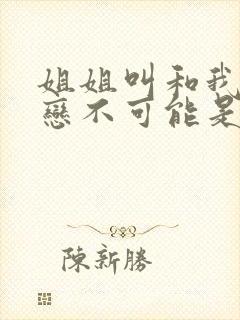 姐姐叫和我
戀不可能是
陳新勝